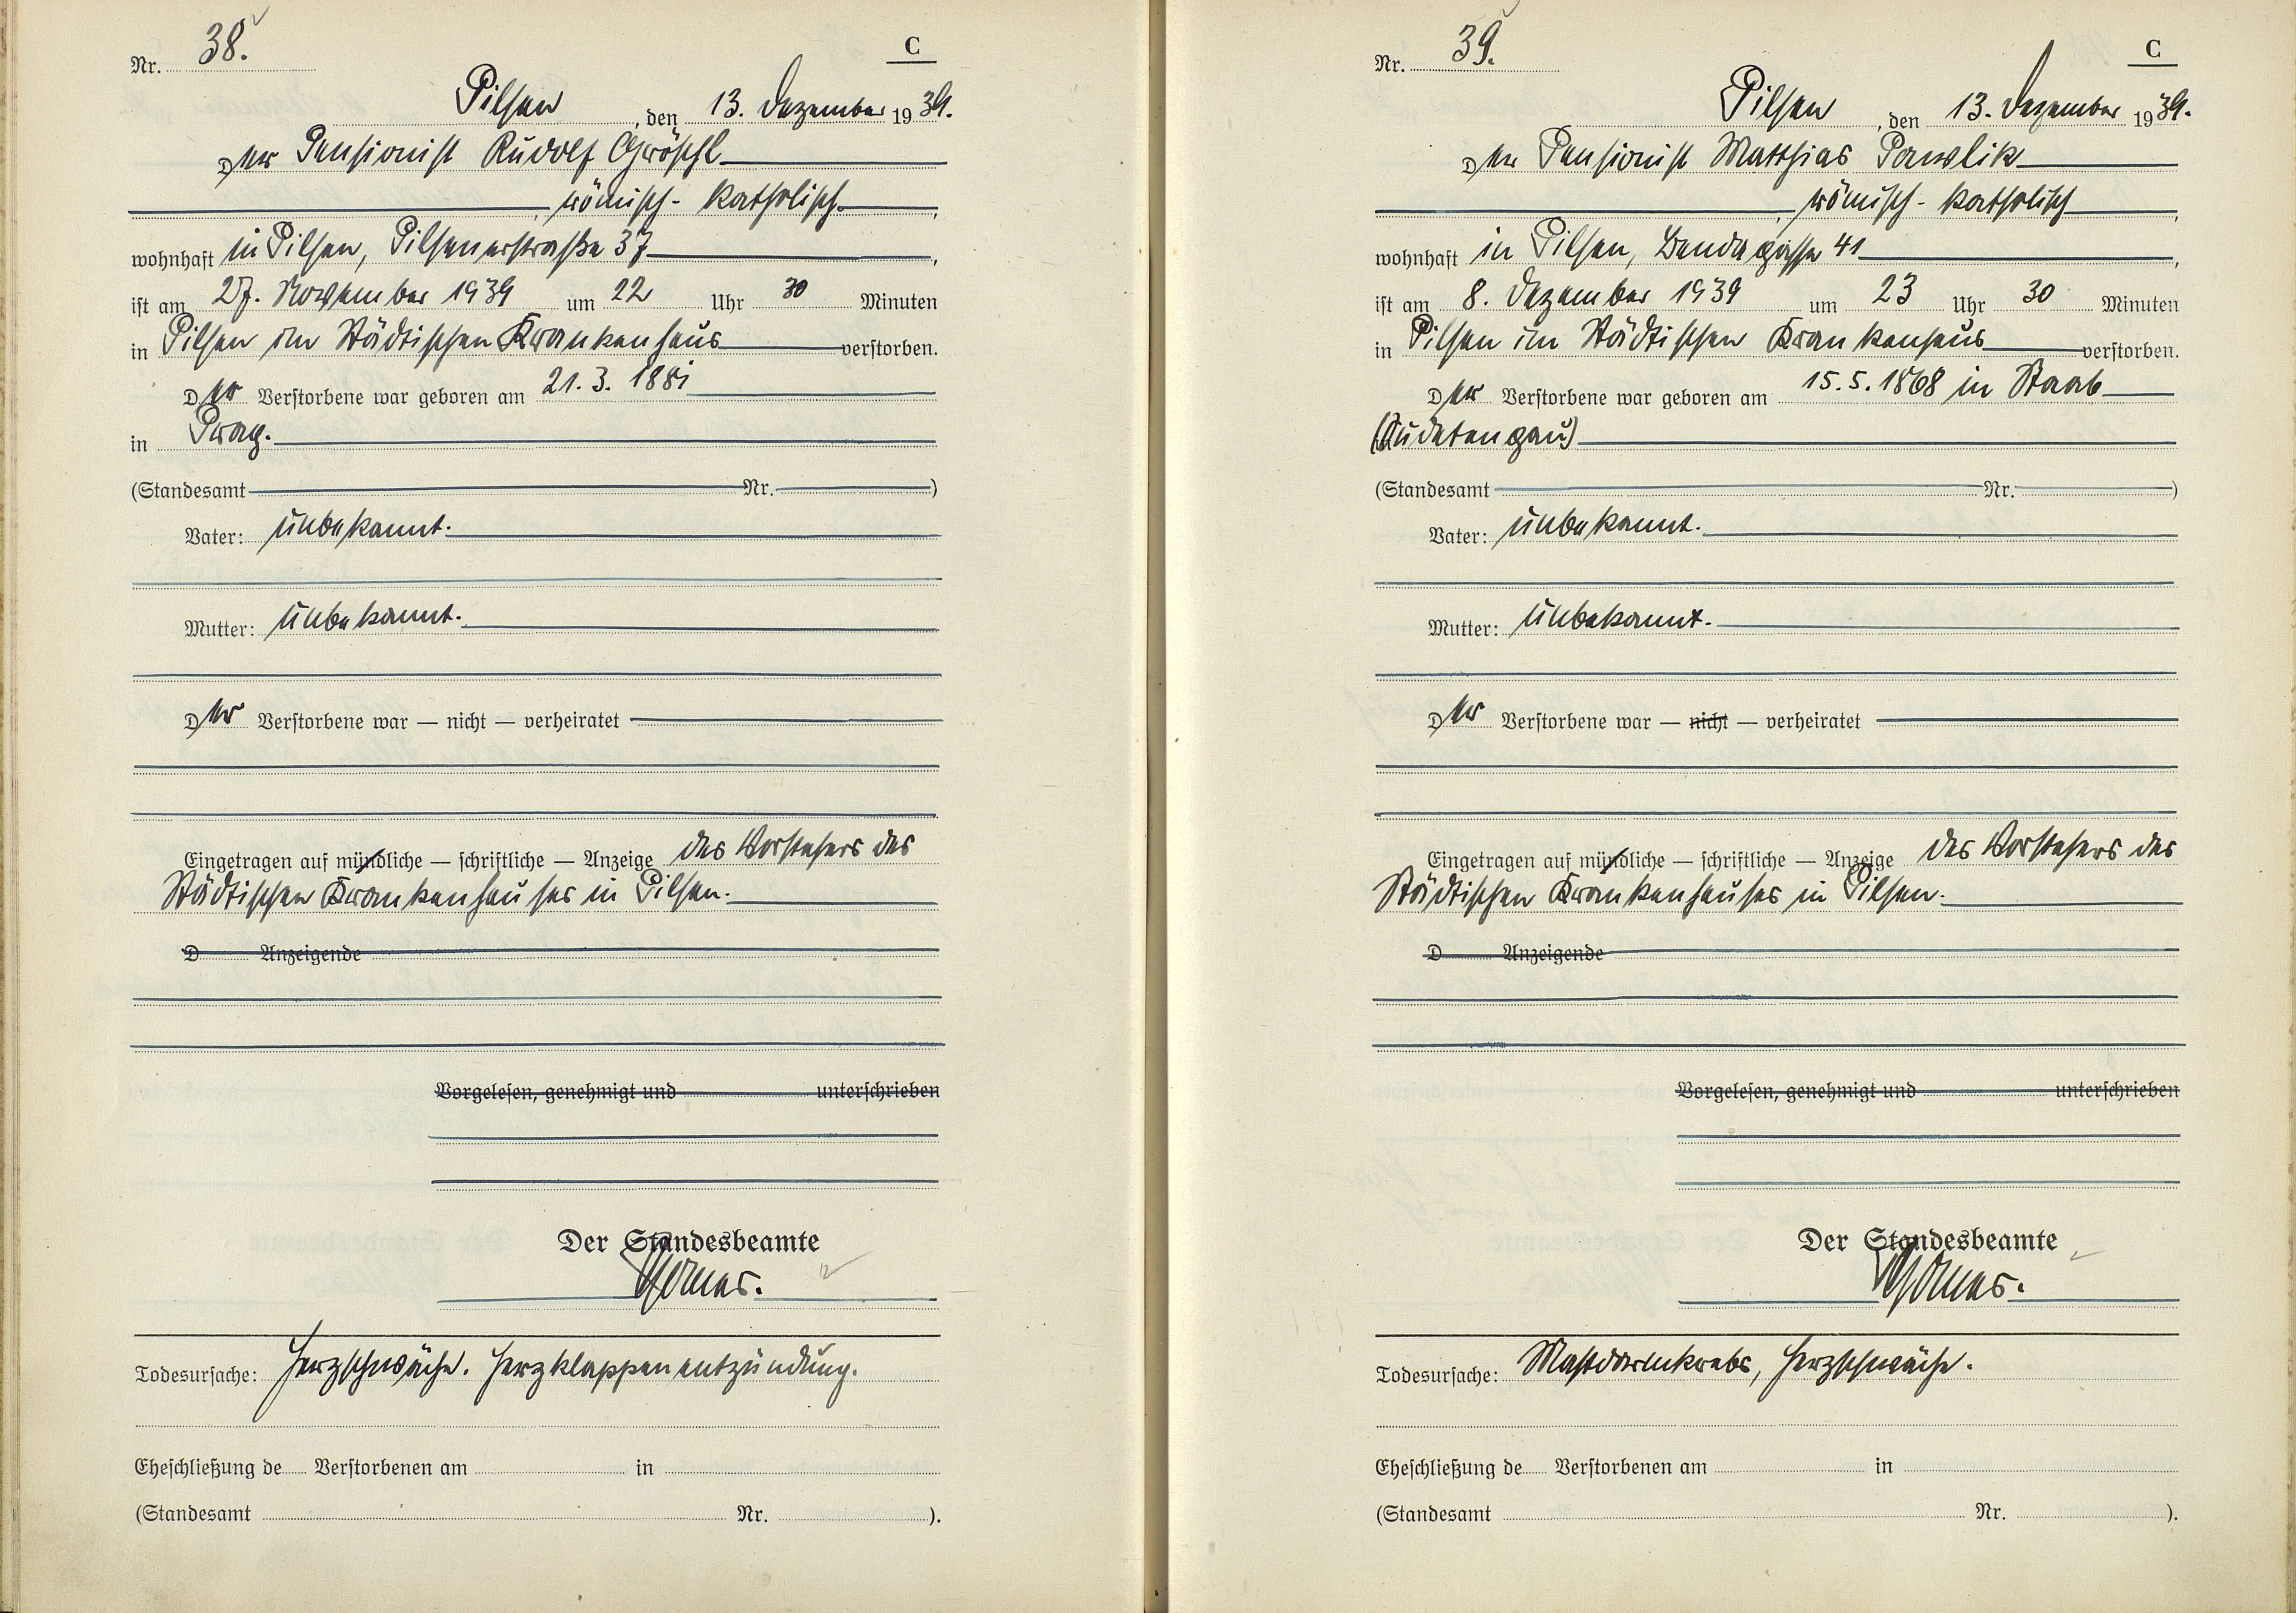 Nr. 38.
C
Pilsen, den 13. Dezember 1939.
Der Pensionist Rudolf Gröschl
, römisch-katholisch,
wohnhaft in Pilsen, Pilsenerstraße 37,
ist am 27. November 1939 um 22 Uhr 30 Minuten
in Pilsen im Städtischen Krankenhaus verstorben.
Der Verstorbene war geboren am 21.3.1881
in Prag.
(Standesamt Nr. )
Vater: unbekannt.
Mutter: unbekannt.
Der Verstorbene war — nicht — verheiratet
Eingetragen auf mündliche — schriftliche — Anzeige des Vorstehers des
Städtischen Krankenhauses in Pilsen.
D Anzeigende
Vorgelesen, genehmigt und unterschrieben
Der Standesbeamte
Todesursache: Herzschwäche. Herzklappenentzündung.
Eheschließung de Verstorbenen am in
(Standesamt Nr. ).
Nr. 39.
C
Pilsen, den 13. Dezember 1939.
Der Pensionist Matthias Pawlik
, römisch-katholisch,
wohnhaft in Pilsen, Bendagasse 41,
ist am 8. Dezember 1939 um 23 Uhr 30 Minuten
in Pilsen im Städtischen Krankenhaus verstorben.
Der Verstorbene war geboren am 15.5.1868 in Staab
(Sudetengau)
(Standesamt Nr. )
Vater: unbekannt.
Mutter: unbekannt.
Der Verstorbene war — nicht — verheiratet
Eingetragen auf mündliche — schriftliche — Anzeige des Vorstehers des
Städtischen Krankenhauses in Pilsen.
D Anzeigende
Vorgelesen, genehmigt und unterschrieben
Der Standesbeamte
Todesursache: Mastdarmkrebs, Herzschwäche.
Eheschließung de Verstorbenen am in
(Standesamt Nr. ).